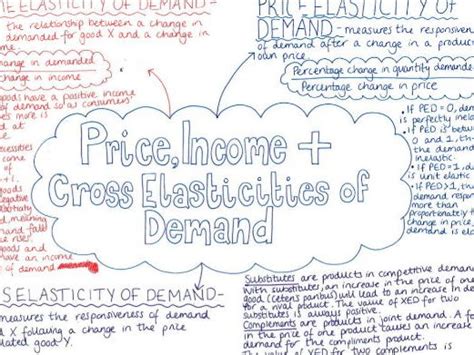 ELASTICITY OF DEMAND-
the relationship between a change in
demanded for good X and a change in
change in demanded
change in income
goods have a positive income
of demand so as consumers'
more is
at
necessities
some
of
+1.
goods
negative
meaning
demand fall
rises.
goods and
have an income
of demand
PRICE ELASTICITY OF
DEMAND - measures the responsiveness
of demand after a change in a product
own price
Percentage change in quantity demanded
Percentage change in price
• If PED = 0, demand
is perfectly inelastic
• If PED is between
0 and 1, then
demand is
inelastic.
• If PED = 1,
is unit elastic
• If PED > 1, the
demand responds
more than
proportionately
change in price
demand is elastic
Price, Income +
Cross Elasticities of
Demand
S ELASTICITY OF DEMAND-
measures the responsiveness of demand
X following a change in the price
related good Y.
Substitutes are products in competitive demand
With substitutes, an increase in the price of one
good (ceteris paribus) will lead to an increase in demand
for a rival product. The value of XED for two
substitutes is always positive.
Complements are products in joint demand. A fall
in the price of one product causes an increase
demand for the compliments product.
The value of XED for two complements is